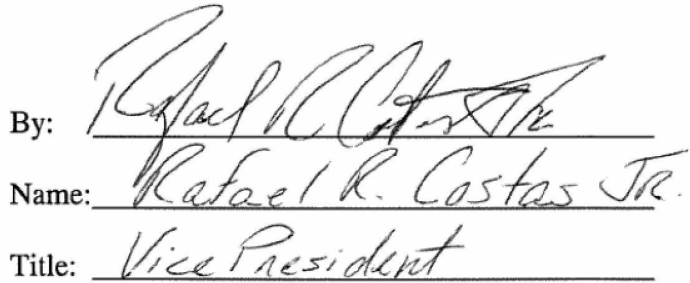 By: Rafael R Costas Jr.
Name: Rafael R. Costas JR.
Title: Vice President